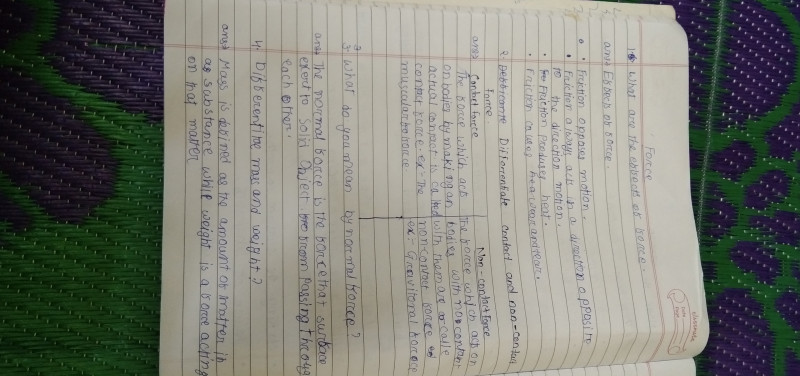 Force
1. What are the effects of force.
ans Effects of force.
• Friction opposes motion.
• Friction always acts in a direction opposite
to the direction motion.
• Friction produces heat.
• Friction causes wear and tear.
2. Differentiate contact and non-contact
force
ans Contact force
The force which act
on bodies by making an
actual contact is called
contact force ex- The
muscular force
Non-contact force
The force which act on
bodies with no contact
with them are calle
non contact force
ex- Gravitional force
3. What do you mean by normal force?
ans The normal force is the force that surface
exert to Soild object from Passing through
each other.
4. Differentibe mass and weight?
ans Mass is defined as the amount of matter in
a substance while weight is a force acting
on that matter